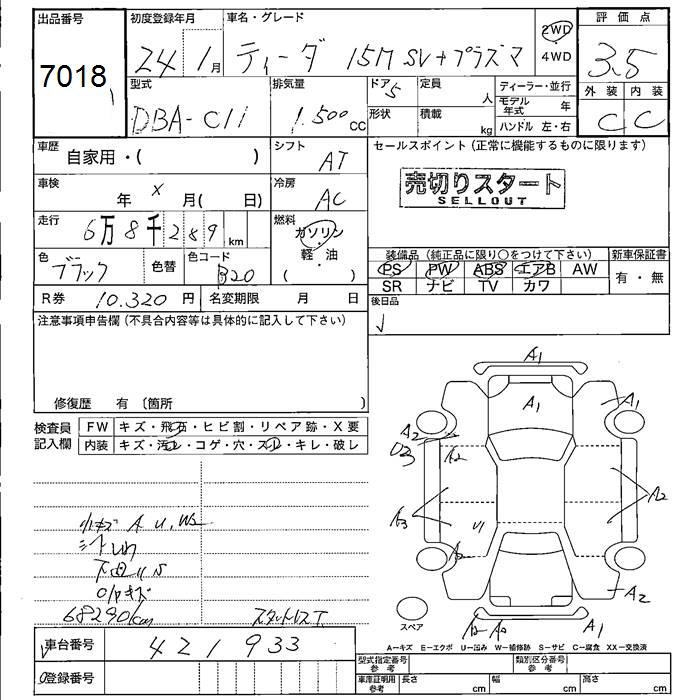 出品番号
7018
初度登録年月
24 1月
車名・グレード
ティーダ 15M SV+プラズマ
2WD
4WD
評価点
3.5
外装 内装
C C
型式
DBA-C11
排気量
1.500cc
ドア 5
形状
定員 人
積載 kg
ディーラー・並行
モデル年式 年
ハンドル 左・右
車歴
自家用・( )
シフト
AT
セールスポイント(正常に機能するものに限ります)
売切りスタート
SELLOUT
車検
年 x 月( 日)
冷房
AC
走行
6万8千289km
燃料
ガソリン
軽・油
( )
色
ブラック
色替
色コード
B20
装備品(純正品に限り○をつけて下さい)
PS PW ABS エアB AW
SR ナビ TV カワ
新車保証書
有・無
R券 10.320円
名変期限 月 日
後日品
注意事項申告欄(不具合内容等は具体的に記入して下さい)
修復歴 有〔箇所 〕
検査員記入欄
FW キズ・飛石・ヒビ割・リペア跡・X要
内装 キズ・汚レ・コゲ・穴・スレ・キレ・破レ
小キズ A U, W2
下回りS
68290km
スタットレスT
A1
A1
A1
A2
A2
A2
A3
U1
A2
A1
スペア
A-キズ E-エクボ U-凹み W-補修跡 S-サビ C-腐食 XX-交換済
車台番号 421933
登録番号
型式指定番号 参考
類別区分番号 参考
車庫証明用 参考
長さ cm
幅 cm
高さ cm